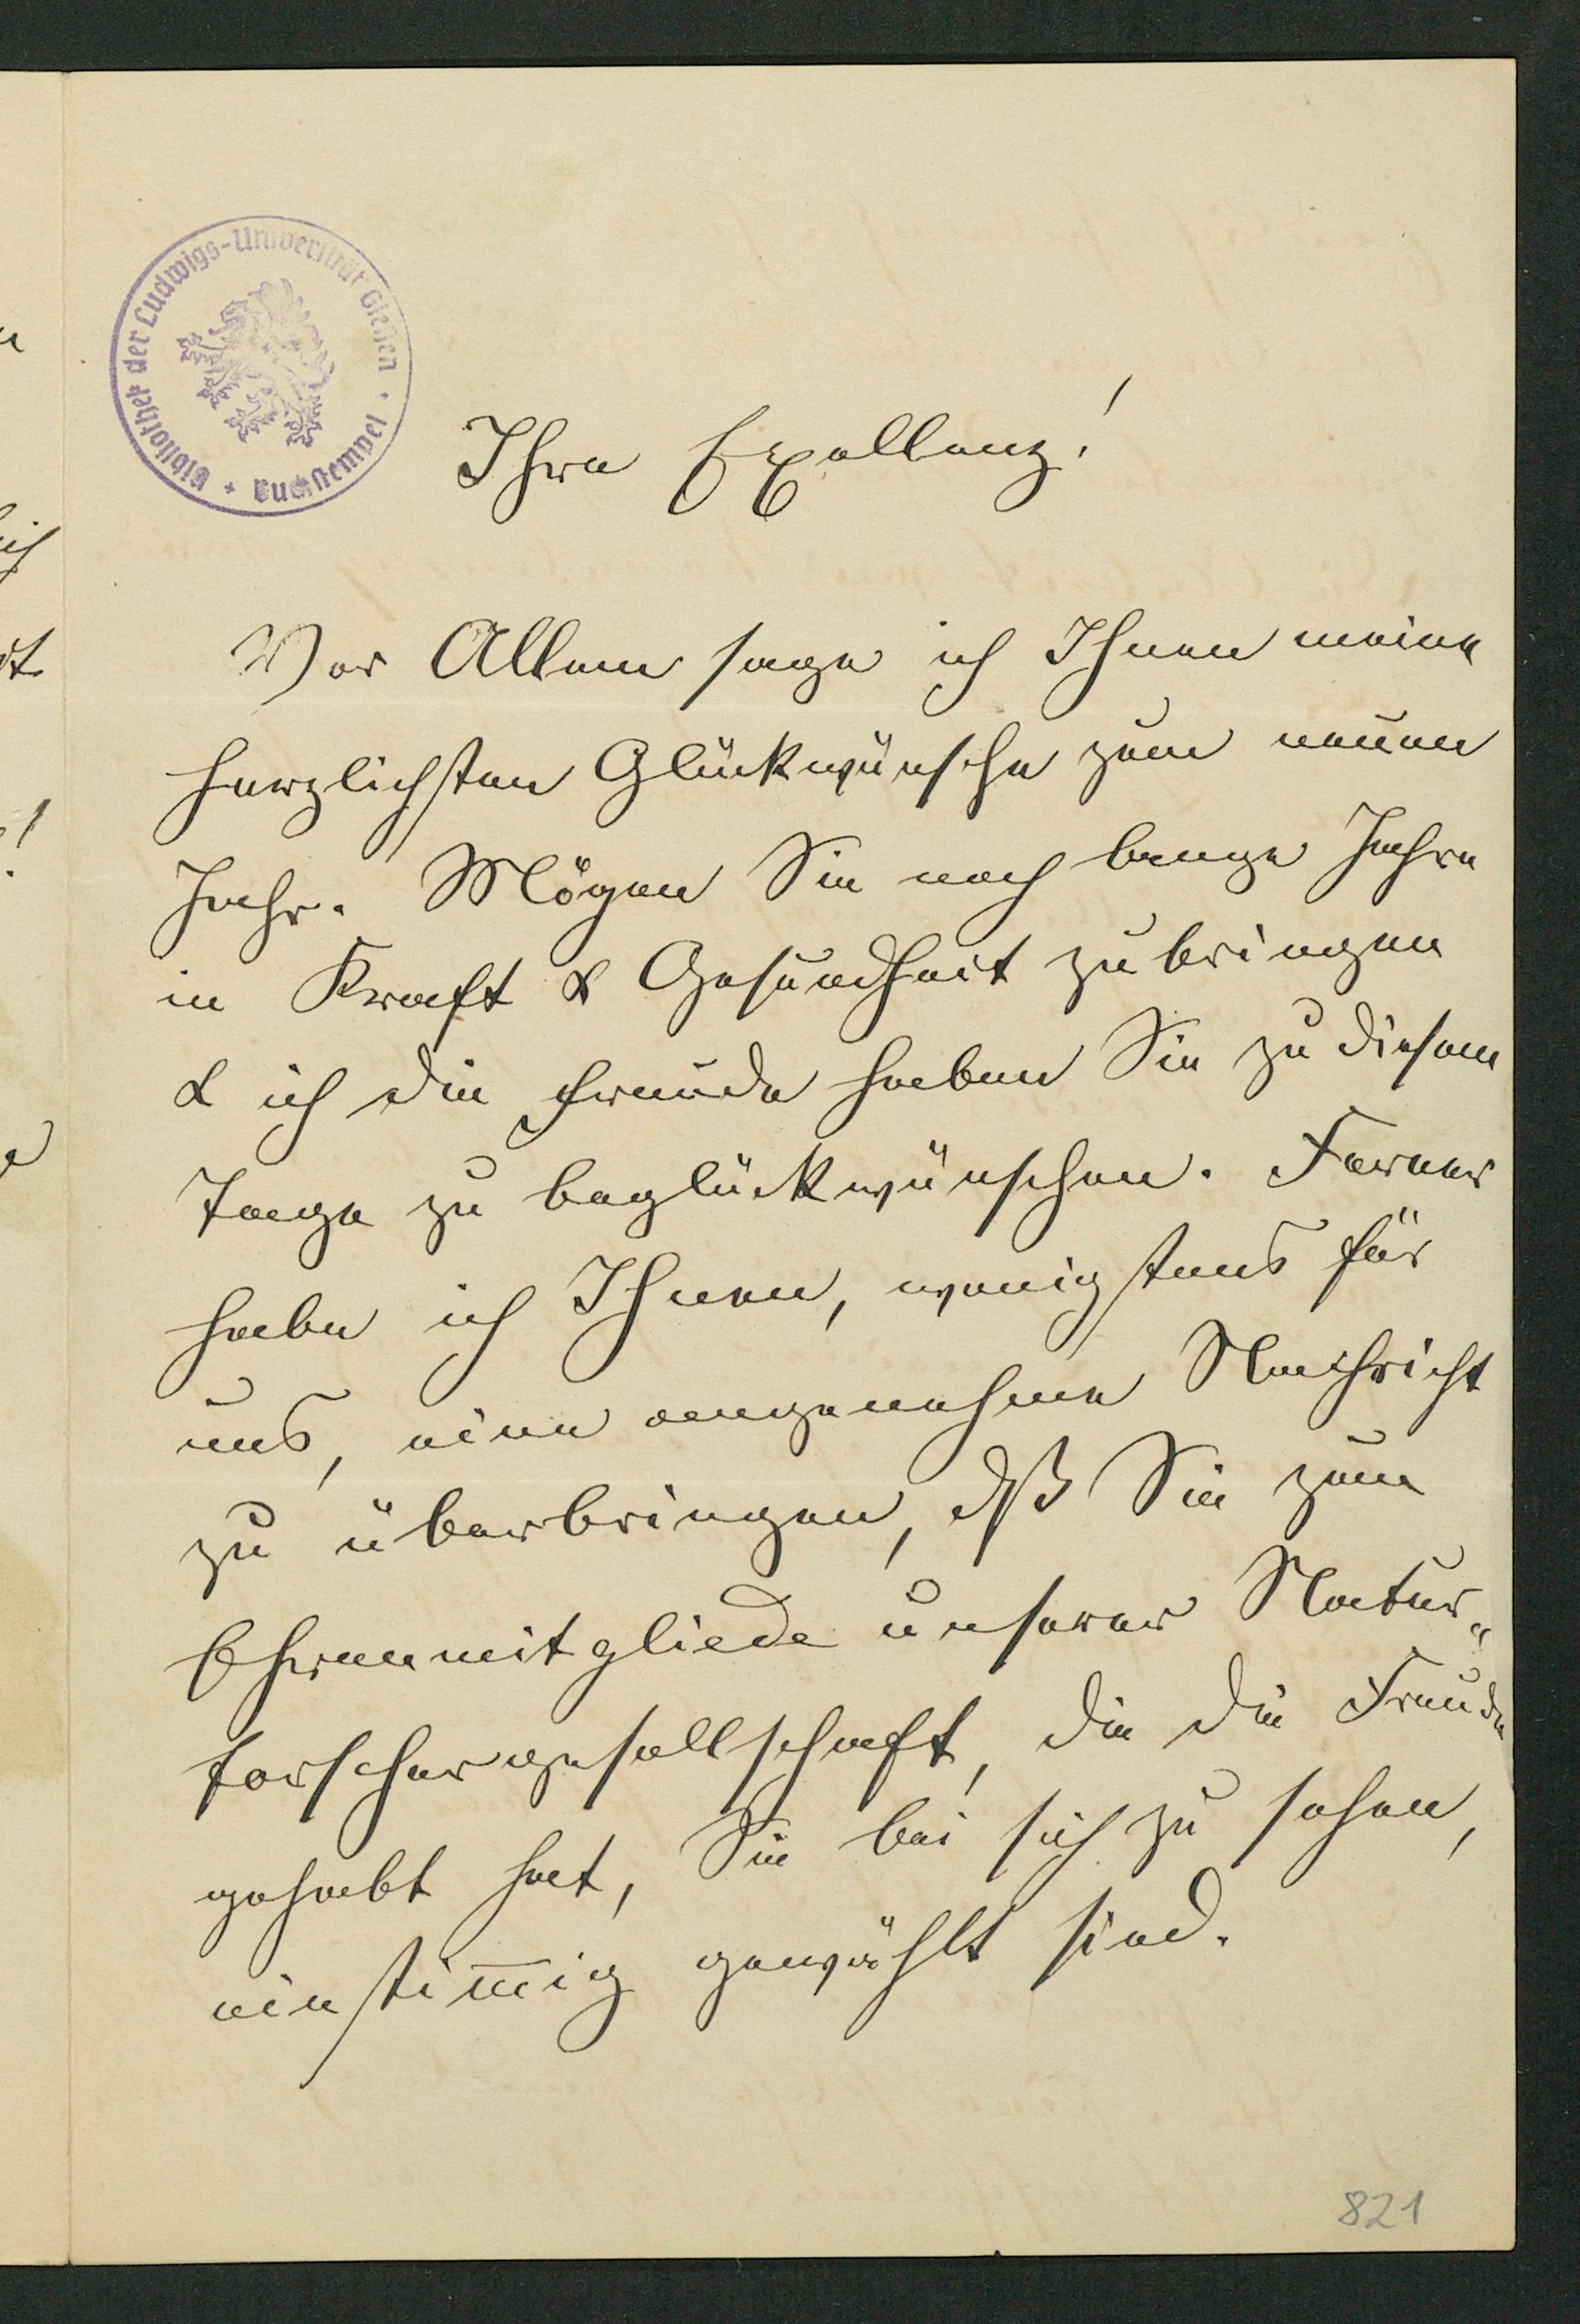 Bibliothek der Ludwigs-Universität Gießen · Buchstempel
Ihre Exellenz!
Vor Allem sage ich Ihnen meine
herzlichsten Glückwünsche zum neuen
Jahr. Mögen Sie noch lange Jahre
in Kraft & Gesundheit zubringen
& ich die Freude haben Sie zu diesem
Tage zu beglückwünschen. Ferner
habe ich Ihnen, wenigstens für
uns, eine angenehme Nachricht
zu überbringen, dß Sie zum
Ehrenmitgliede unserer Natur„
forschergesellschaft, die die Freude
gehabt hat, Sie bei sich zu sehen,
einstim̅ig gewählt sind.
821